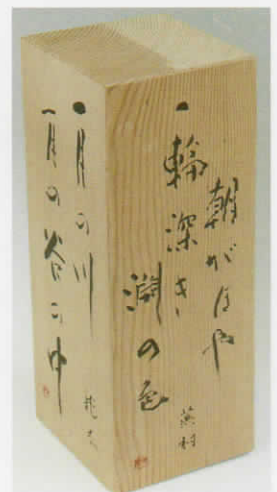 朝がほや
一輪深き
淵の色
蕪村
一月の川
一月の谷の中
龍太